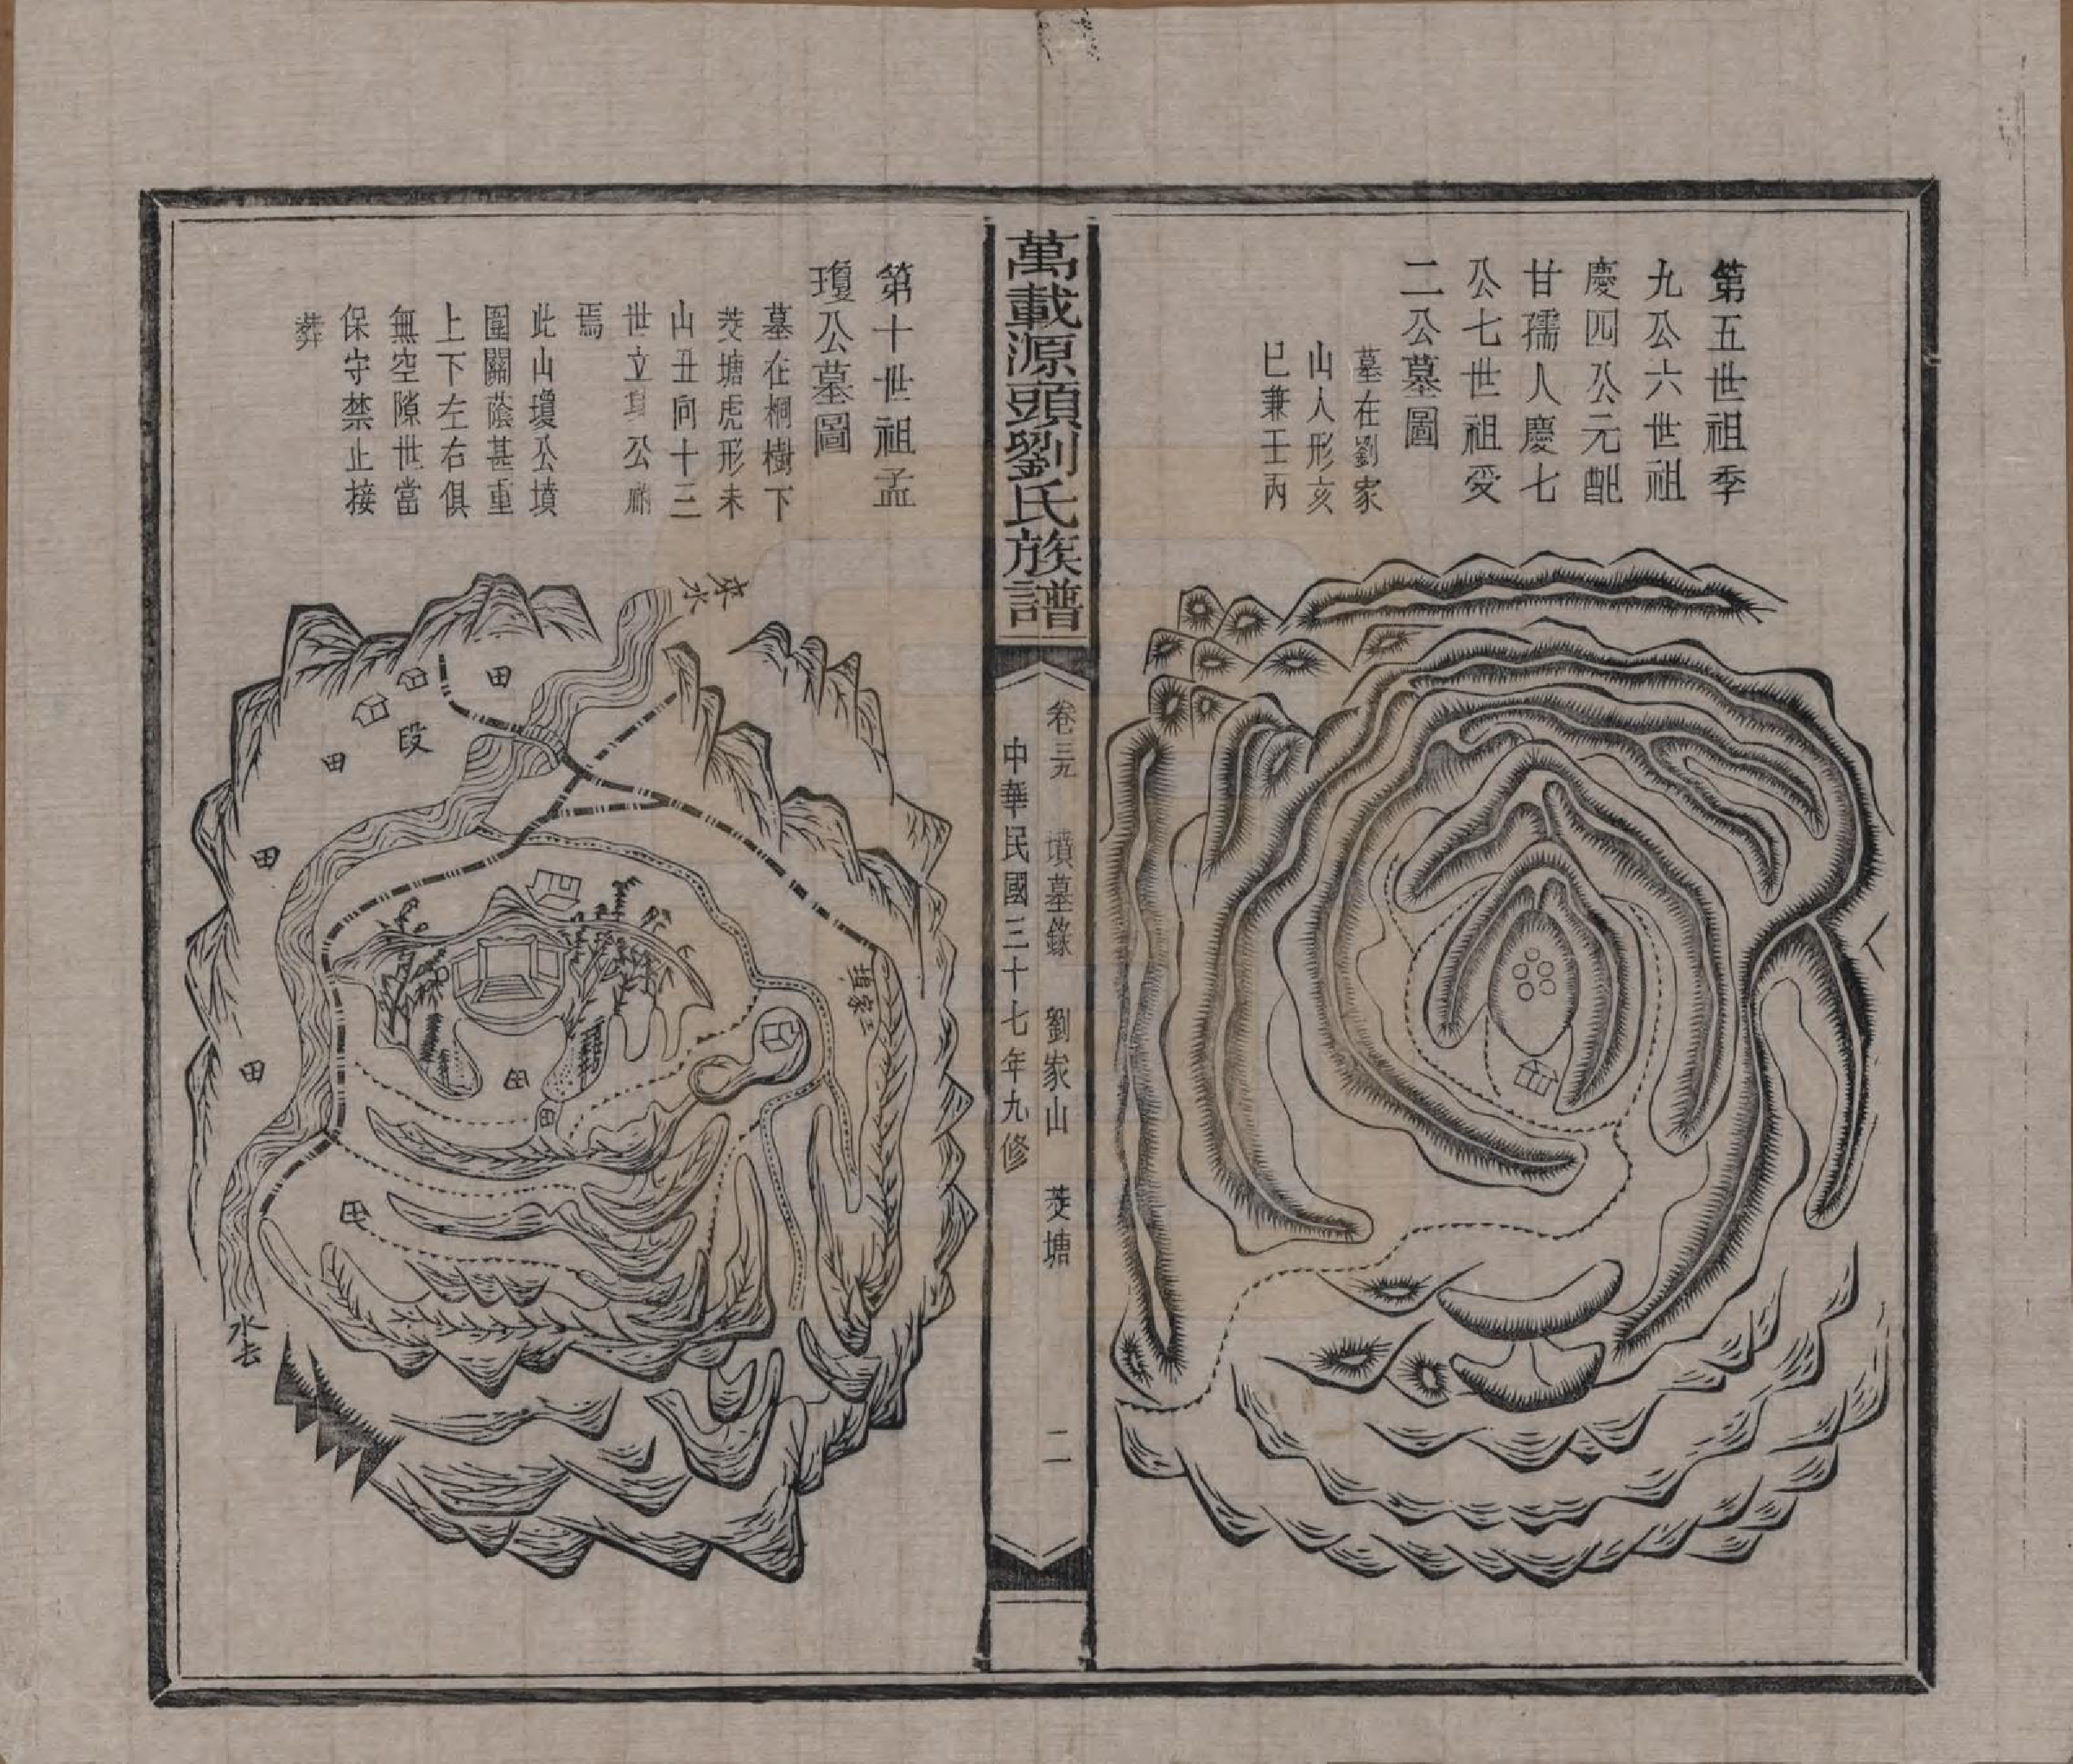 第五世祖季
九公六世祖
慶四公元配
甘孺人慶七
公七世祖受
二公墓圖
墓在劉家
山人形亥
巳兼壬丙
萬載源頭劉氏族譜
卷三元 墳墓錄 劉家山 茭塘 二
中華民國三十七年九修
第十世祖孟
瓊公墓圖
墓在桐樹下
茭塘虎形未
山丑向十三
世立
公祔
焉
此山瓊公墳
圍關蔭甚重
上下左右俱
無空隙世當
保守禁止接
葬
來水
田
段
田
田
田
田
田
田
水去